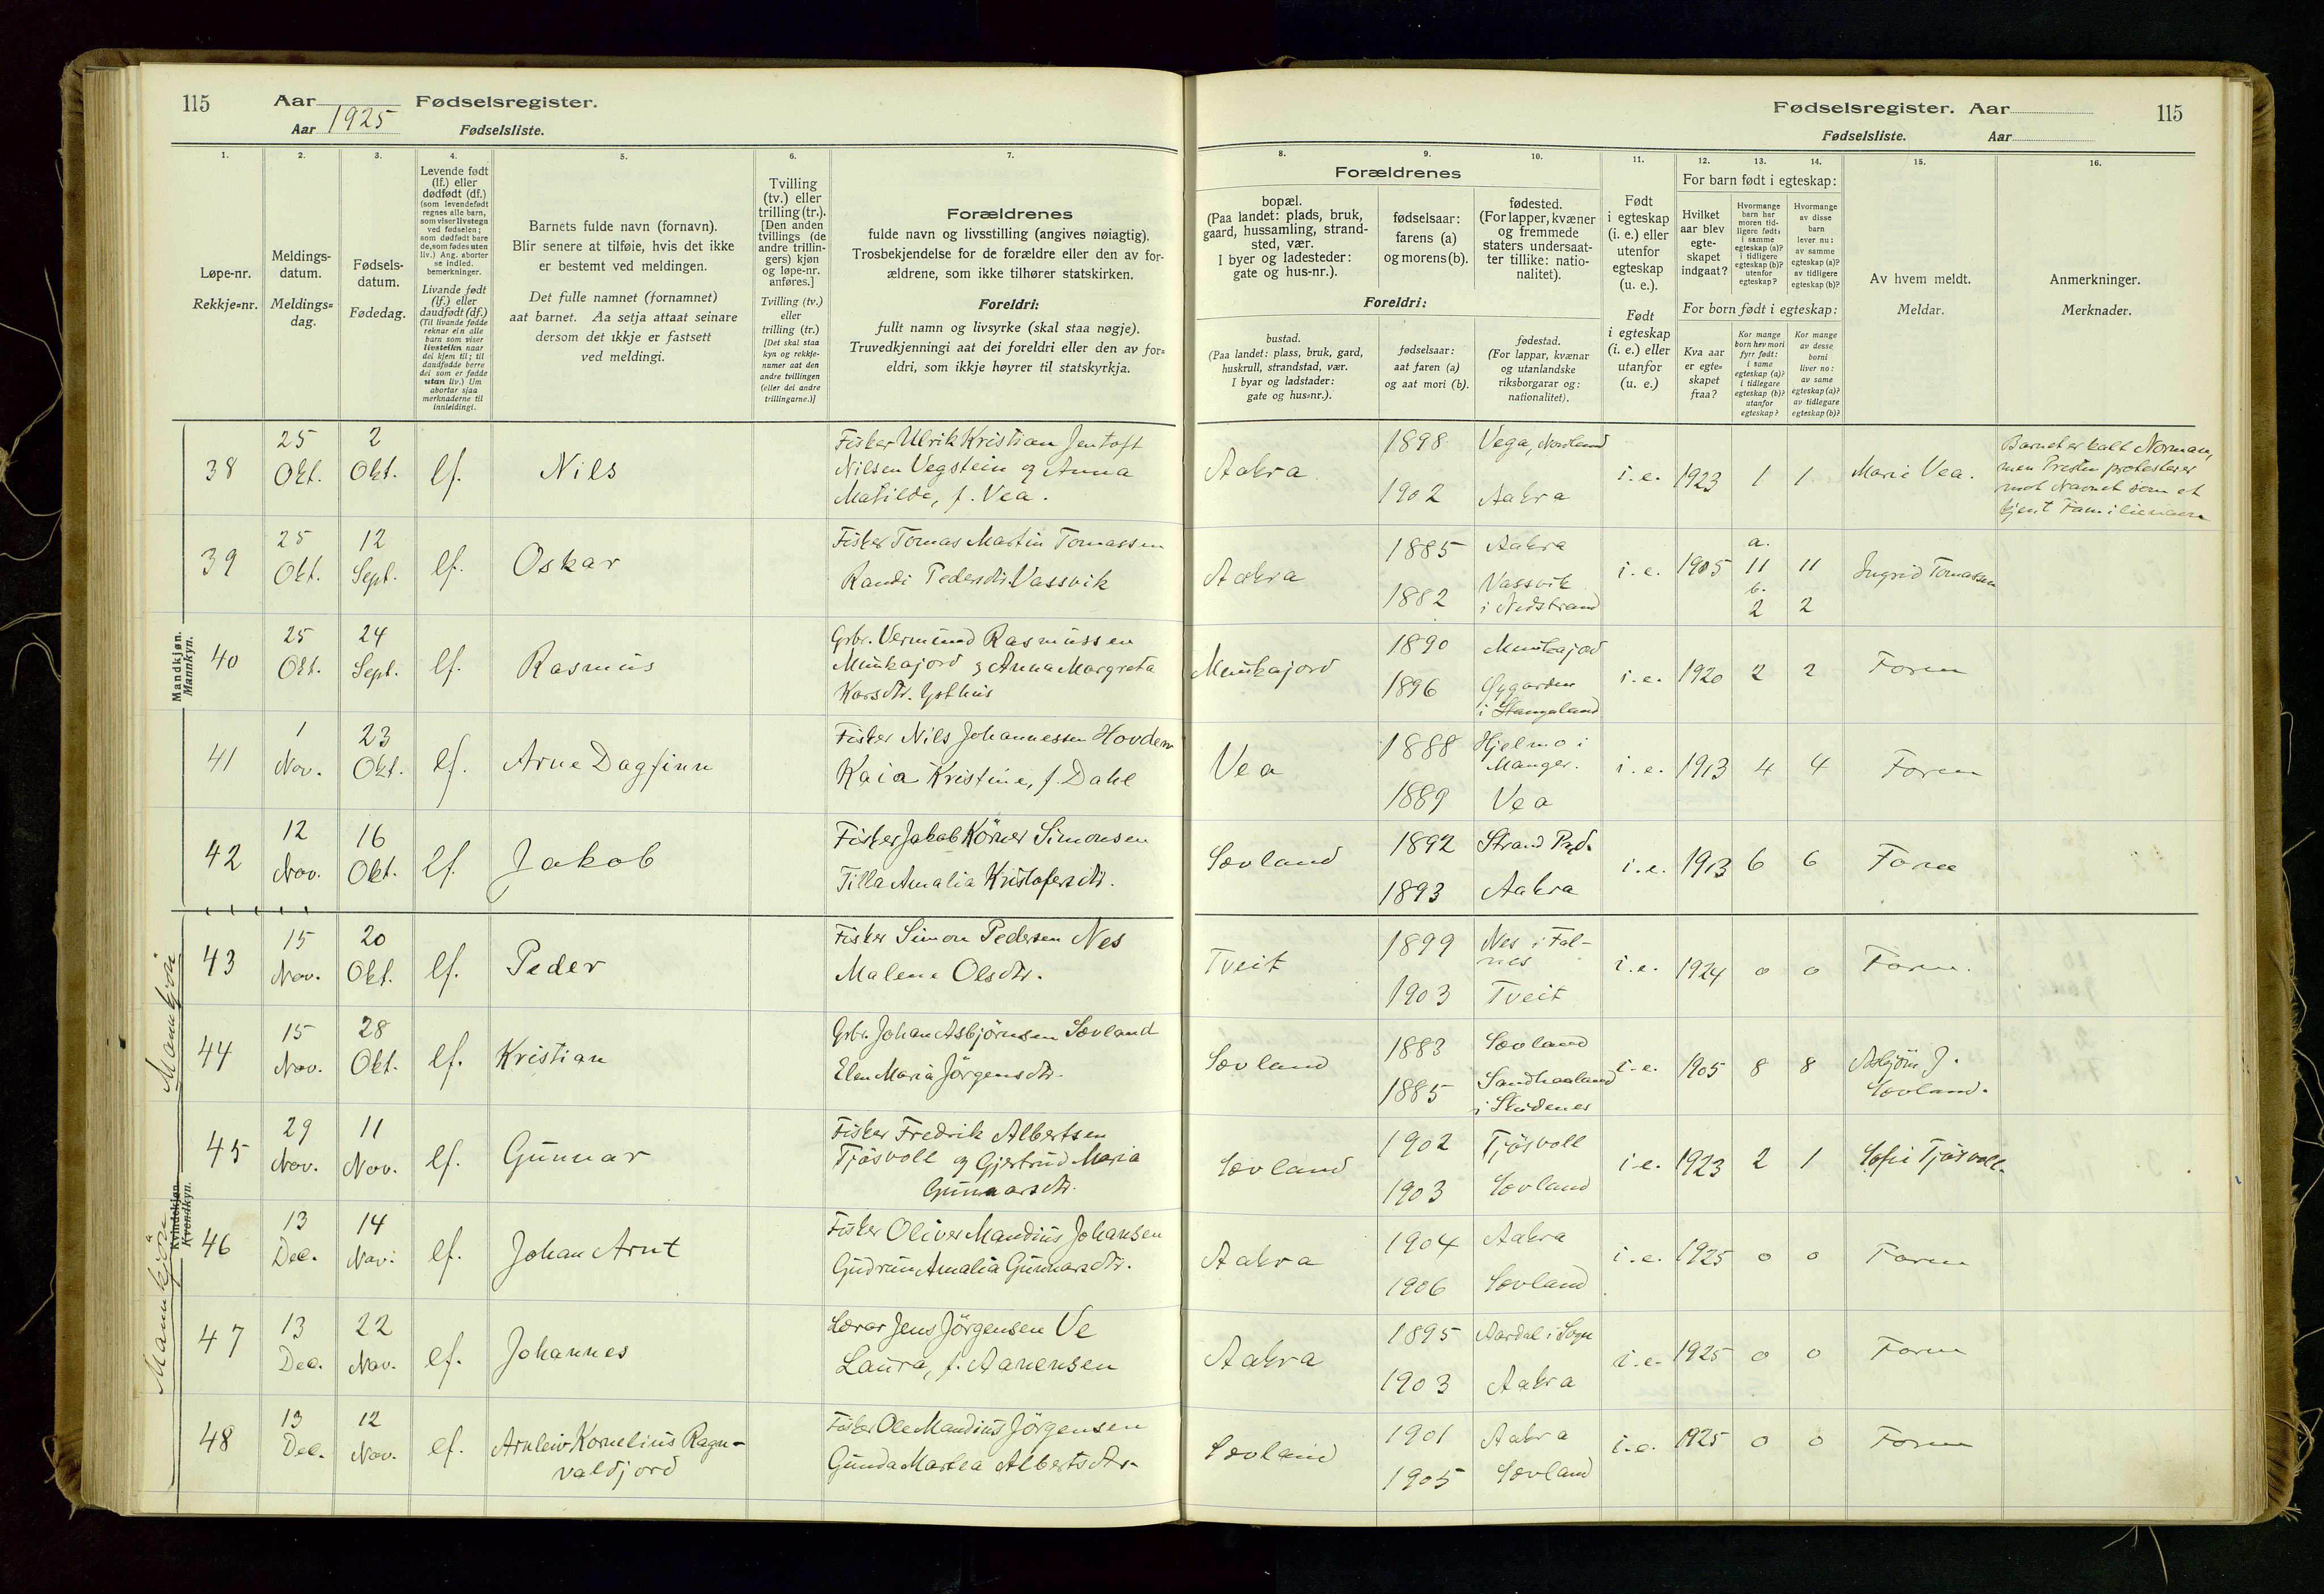 115 Aar Fødselsregister.
Aar 1925 Fødselsliste.
Fødselsregister. Aar 115
Fødselsliste. Aar
1. 2. 3. 4. 5. 6. 7.
Løpe-nr.
Rekkje=nr.
Meldings-
datum.
Meldings=
dag.
Fødsels-
datum.
Fødedag.
Levende født
(lf.) eller
dødfødt (df.)
(som levendefødt
regnes alle barn,
som viser livstegn
ved fødselen;
som dødfødt bare
de, som fødes uten
liv.) Ang. aborter
se indled.
bemerkninger.
Livande født
(lf.) eller
daudfødt (df.)
(Til livande fødde
reknar ein alle
barn som viser
livsteikn naar
dei kjem til; til
daudfødde berre
dei som er fødde
utan liv.) Um
abortar sjaa
merknaderne til
innleidingi.
Barnets fulde navn (fornavn).
Blir senere at tilføie, hvis det ikke
er bestemt ved meldingen.
Det fulle namnet (fornamnet)
aat barnet. Aa setja attaat seinare
dersom det ikkje er fastsett
ved meldingi.
Tvilling
(tv.) eller
trilling (tr.).
[Den anden
tvillings (de
andre trillin-
gers) kjøn
og løpe-nr.
anføres.]
Tvilling (tv.)
eller
trilling (tr.)
[Det skal staa
kyn og rekkje-
numer aat den
andre tvillingen
(eller dei andre
trillingarne.)]
Forældrenes
fulde navn og livsstilling (angives nøiagtig).
Trosbekjendelse for de forældre eller den av for-
ældrene, som ikke tilhører statskirken.
Foreldri:
fullt namn og livsyrke (skal staa nøgje).
Truvedkjenningi aat dei foreldri eller den av for=
eldri, som ikkje høyrer til statskyrkja.
8. 9. 10. 11. 12. 13. 14. 15. 16.
Forældrenes
bopæl.
(Paa landet: plads, bruk,
gaard, hussamling, strand-
sted, vær.
I byer og ladesteder:
gate og hus-nr.).
fødselsaar:
farens (a)
og morens (b).
fødested.
(For lapper, kvæner
og fremmede
staters undersaat-
ter tillike: natio-
nalitet).
Foreldri:
bustad.
(Paa landet: plass, bruk, gard,
huskrull, strandstad, vær.
I byar og ladstader:
gate og hus=nr.).
fødselsaar:
aat faren (a)
og aat mori (b).
fødestad.
(For lappar, kvænar
og utanlandske
riksborgarar og:
nationalitet).
Født
i egteskap
(i. e.) eller
utenfor
egteskap
(u. e.).
Født
i egteskap
(i. e.) eller
utanfor
(u. e.)
For barn født i egteskap:
Hvilket
aar blev
egte-
skapet
indgaat?
Hvormange
barn har
moren tid-
ligere født:
i samme
egteskap (a)?
i tidligere
egteskap (b)?
utenfor
egteskap?
Hvormange
av disse
barn
lever nu:
av samme
egteskap (a)?
av tidligere
egteskap (b)?
For born født i egteskap:
Kva aar
er egte=
skapet
fraa?
Kor mange
born hev mori
fyrr født:
i same
egteskap (a)?
i tidlegare
egteskap (b)?
utanfor
egteskap?
Kor mange
av desse
borni
liver no:
av same
egteskap (a)?
av tidlegare
egteskap (b)?
Av hvem meldt.
Meldar.
Anmerkninger.
Merknader.
Mandkjøn.
Mannkyn.
38 25 Okt. 2 Okt. lf. Nils
Fisker Ulrik Kristian Jentoft
Nilsen Vegstein og Anna
Matilde, f. Vea.
Aakra 1898 Vega, Nordland
1902 Aakra
i. e. 1923 1 1 Marie Vea.
Barnet er kalt Norman,
men Presten protesterer
mot Navnet som et
kjent Familienavn
39 25 Okt. 12 Sept. lf. Oskar
Fisker Tomas Martin Tomassen
Randi Pedersdtr. Vassvik
Aakra 1885 Aakra
1882 Vassvik
i Nedstrand
i. e. 1905 a. 11 11
b. 2 2
Ingrid Tomassen
40 25 Okt. 24 Sept. lf. Rasmus
Grbr. Vermund Rasmussen
Munkajord og Anna Margreta
Larsdtr. Ysthus
Munkajord 1890 Munkajord
1896 Øygarden
i Stangaland
i. e. 1920 2 2 Foren
41 1 Nov. 23 Okt. lf. Arne Dagfinn
Fisker Nils Johannessen Hovden
Kaia Kristine, f. Dahl
Vea 1888 Hjelmo i
Manger.
1889 Vea
i. e. 1913 4 4 Foren
42 12 Nov. 16 Okt. lf. Jakob
Fisker Jakob Körner Simonsen
Tilla Amalia Kristofersdtr.
Sævland 1892 Strand Pgd.
1893 Aakra
i. e. 1913 6 6 Foren
Mannkjön
43 15 Nov. 20 Okt. lf. Peder
Fisker Simon Pedersen Nes
Malene Olsdtr.
Tveit 1899 Nes i Fal-
nes
1903 Tveit
i. e. 1924 0 0 Foren.
44 15 Nov. 28 Okt. lf. Kristian
Grbr. Johan Asbjörnsen Sævland
Elen Maria Jörgensdtr.
Sævland 1883 Sævland
1885 Sandhaaland
i Skudenes
i. e. 1905 8 8 Asbjörn J.
Sævland.
45 29 Nov. 11 Nov. lf. Gunnar
Fisker Fredrik Albertsen
Tjösvoll og Gjertrud Maria
Gunnarsdtr.
Sævland 1902 Tjösvoll
1903 Sævland
i. e. 1923 2 1 Sofie Tjösvoll.
Kvindekjøn
Kvendkyn.
Mannkjön
46 13 Dec. 14 Nov. lf. Johan Arnt
Fisker Oliver Mandius Johansen
Gudrun Amalia Gunnarsdtr.
Aakra 1904 Aakra
1906 Sævland
i. e. 1925 0 0 Foren
47 13 Dec. 22 Nov. lf. Johannes
Lærar Jens Jörgensen Ve
Laura, f. Aanensen
Aakra 1895 Aardal i Sogn
1903 Aakra
i. e. 1925 0 0 Foren
48 13 Dec. 12 Nov. lf. Arnleiv Kornelius Ragn-
valdjord
Fisker Ole Mandius Jörgensen
Gunda Martea Albertsdtr.
Sævland 1901 Aakra
1905 Sævland
i. e. 1925 0 0 Foren